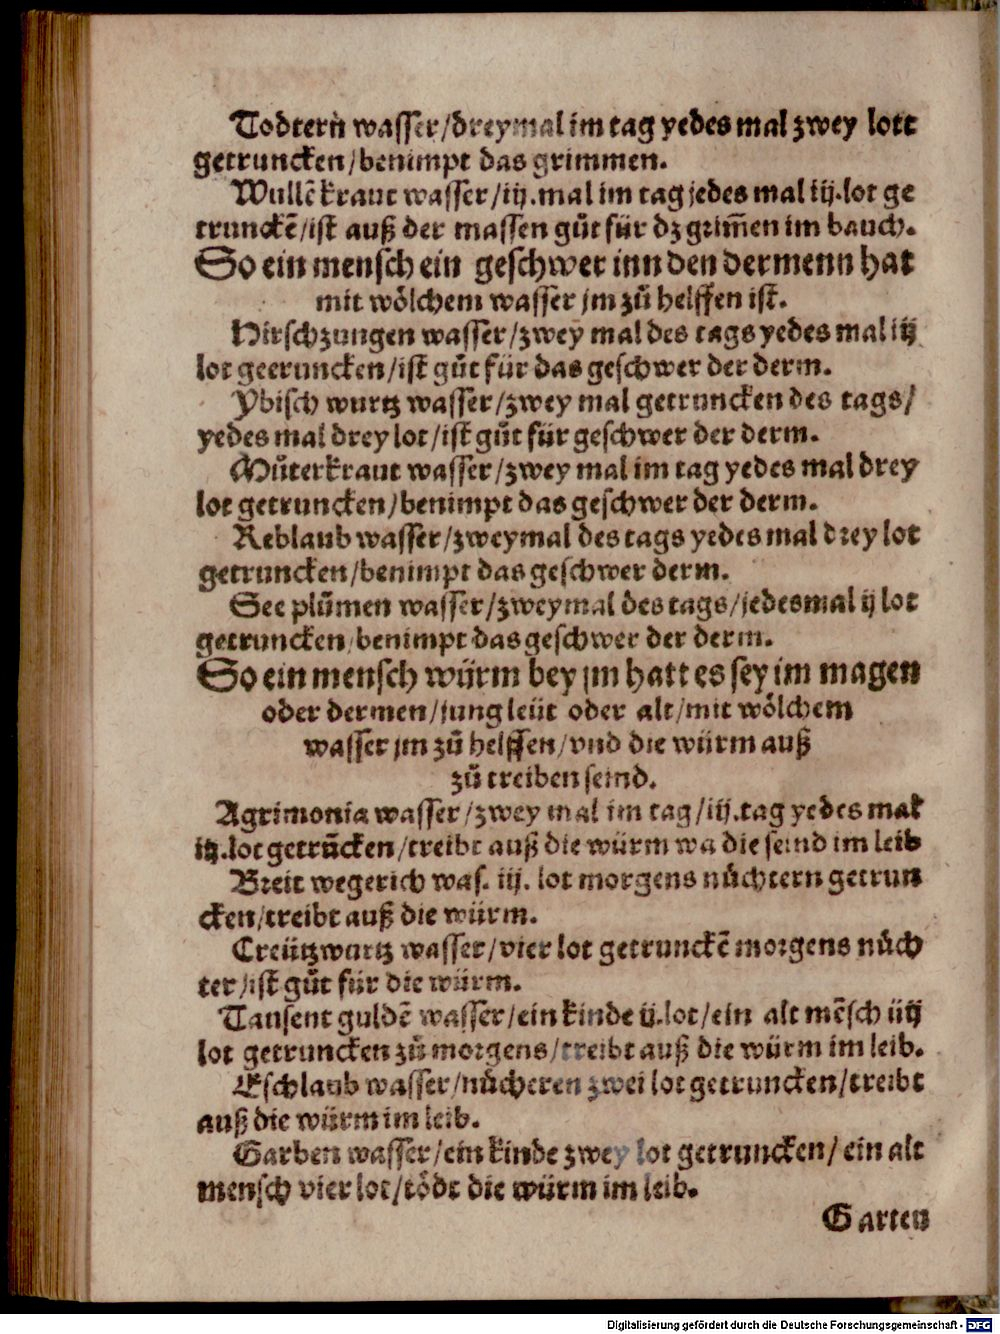 Todtern wasser/dreymal im tag yedes mal zwey lott
getruncken/benimpt das grimmen.
Wullẽ kraut wasser/iij.mal im tag jedes mal iij.lot ge
trunckẽ/ist auß der massen gůt für dz grim̃en im bauch.
So ein mensch ein geschwer inn den dermenn hat
mit wölchem wasser jm zů helffen ist.
Hirschzungen wasser/zwey mal des tags yedes mal iij
lot geeruncken/ist gůt für das geschwer der derm.
Ybisch wurtz wasser/zwey mal getruncken des tags/
yedes mal drey lot/ist gůt für geschwer der derm.
Můterkraut wasser/zwey mal im tag yedes mal drey
lot getruncken/benimpt das geschwer der derm.
Reblaub wasser/zweymal des tags yedes mal drey lot
getruncken/benimpt das geschwer derm.
See plůmen wasser/zweymal des tags/jedesmal ij lot
getruncken/benimpt das geschwer der derm.
So ein mensch würm bey jm hatt es sey im magen
oder dermen/jung leüt oder alt/mit wölchem
wasser jm zů helffen/vnd die würm auß
zů treiben seind.
Agrimonia wasser/zwey mal im tag/iij.tag yedes mal
iij.lot getrũcken/treibt auß die würm wa die seind im leib
Breit wegerich was. iij. lot morgens nůchtern getrun
cken/treibt auß die würm.
Creützwurtz wasser/vier lot getrunckẽ morgens nůch
ter/ist gůt für die würm.
Tausent guldẽ wasser/ein kinde ij.lot/ein alt mẽsch iiij
lot getruncken zů morgens/treibt auß die würm im leib.
Eschlaub wasser/nůcheren zwei lot getruncken/treibt
auß die würm im leib.
Garben wasser/ein kinde zwey lot getruncken/ ein alt
mensch vier lot/tödt die würm im leib.
Garten
Digitalisierung gefördert durch die Deutsche Forschungsgemeinschaft - DFG